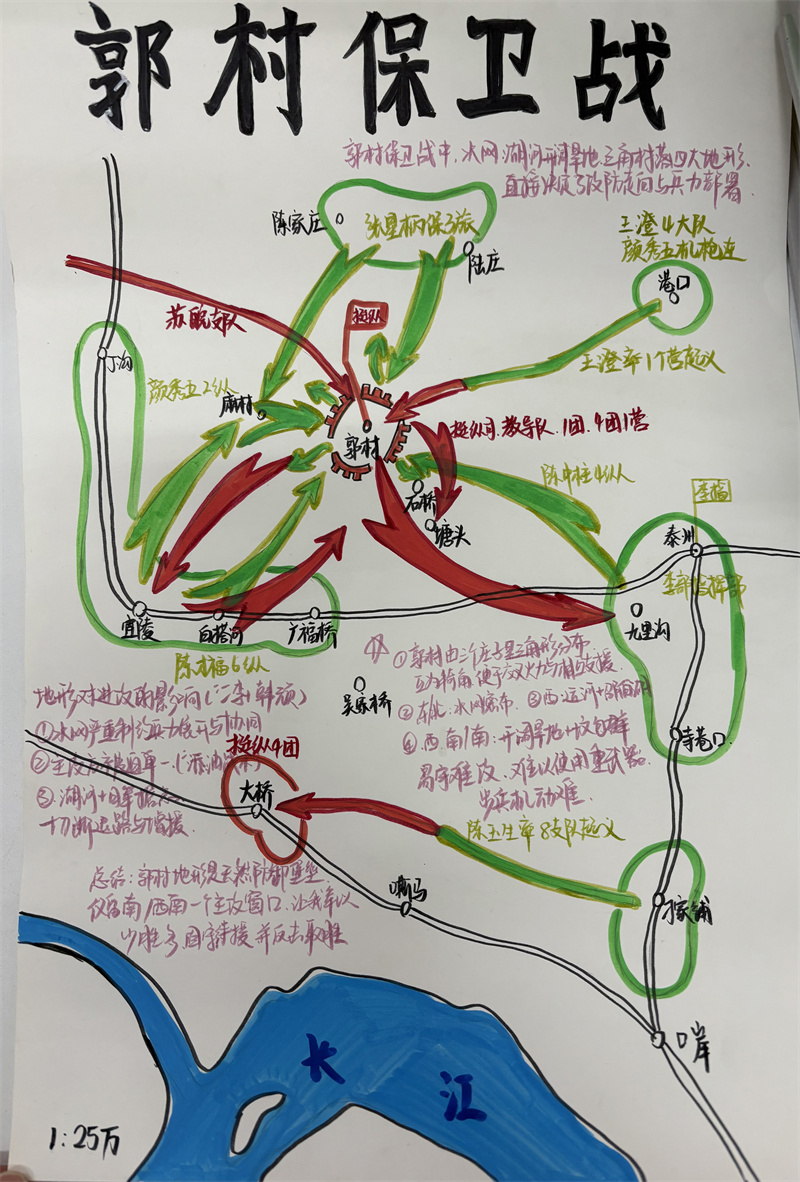 郭村保卫战
郭村保卫战中，水网、湖河、开阔旱地、三角村落四大地形，
直接决定了攻防走向与兵力部署。
陈家庄
张星炳保3旅
陆庄
王澄4大队
颜秀五机枪连
港口
苏皖支队
挺纵
王澄率1个营起义
丁沟
颜秀五2纵
麻村
郭村
挺纵司、教导队、1团、4团1营
石桥
塘头
陈中柱4纵
泰州
李部指挥部
九里沟
宜陵
白塔河
广福桥
陈才福6纵
吴家桥
①郭村由三个庄呈三角形分布
互为犄角，便于交叉火力与相互支援。
②东北：水网密布
③西：运河+邵伯湖
④西南/南：开阔旱地+坟包群
易守难攻、难以使用重武器
步兵机动难
地形对进攻的影响
①水网严重制约兵力展开与协同
②主攻方向单一
③湖河+日军据点
切断退路与增援
挺纵4团
大桥
寺巷口
陈玉生率8支队起义
总结：郭村地形是天然防御堡垒
仅留南/西南一个主攻窗口，让我军以
少胜多、固守待援并反击取胜
嘶马
刁家铺
口岸
长江
1：25万